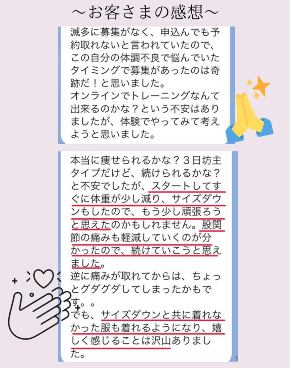 ～お客さまの感想～
滅多に募集がなく、申込んでも予
約取れないと言われていたので、
この自分の体調不良で悩んでいた
タイミングで募集があったのは奇
跡だ！と思いました。
オンラインでトレーニングなんて
出来るのかな？という不安はあり
ましたが、体験でやってみて考え
ようと思いました。
本当に痩せられるかな？３日坊主
タイプだけど、続けられるかな？
と不安でしたが、スタートしてす
ぐに体重が少し減り、サイズダウ
ンもしたので、もう少し頑張ろう
と思えたのかもしれません。股関
節の痛みも軽減していくのが分
かったので、続けていこうと思え
ました。
逆に痛みが取れてからは、ちょっ
とグダグダしてしまったかもで
す。。
でも、サイズダウンと共に着れな
かった服も着れるようになり、嬉
しく感じることは沢山ありまし
た。